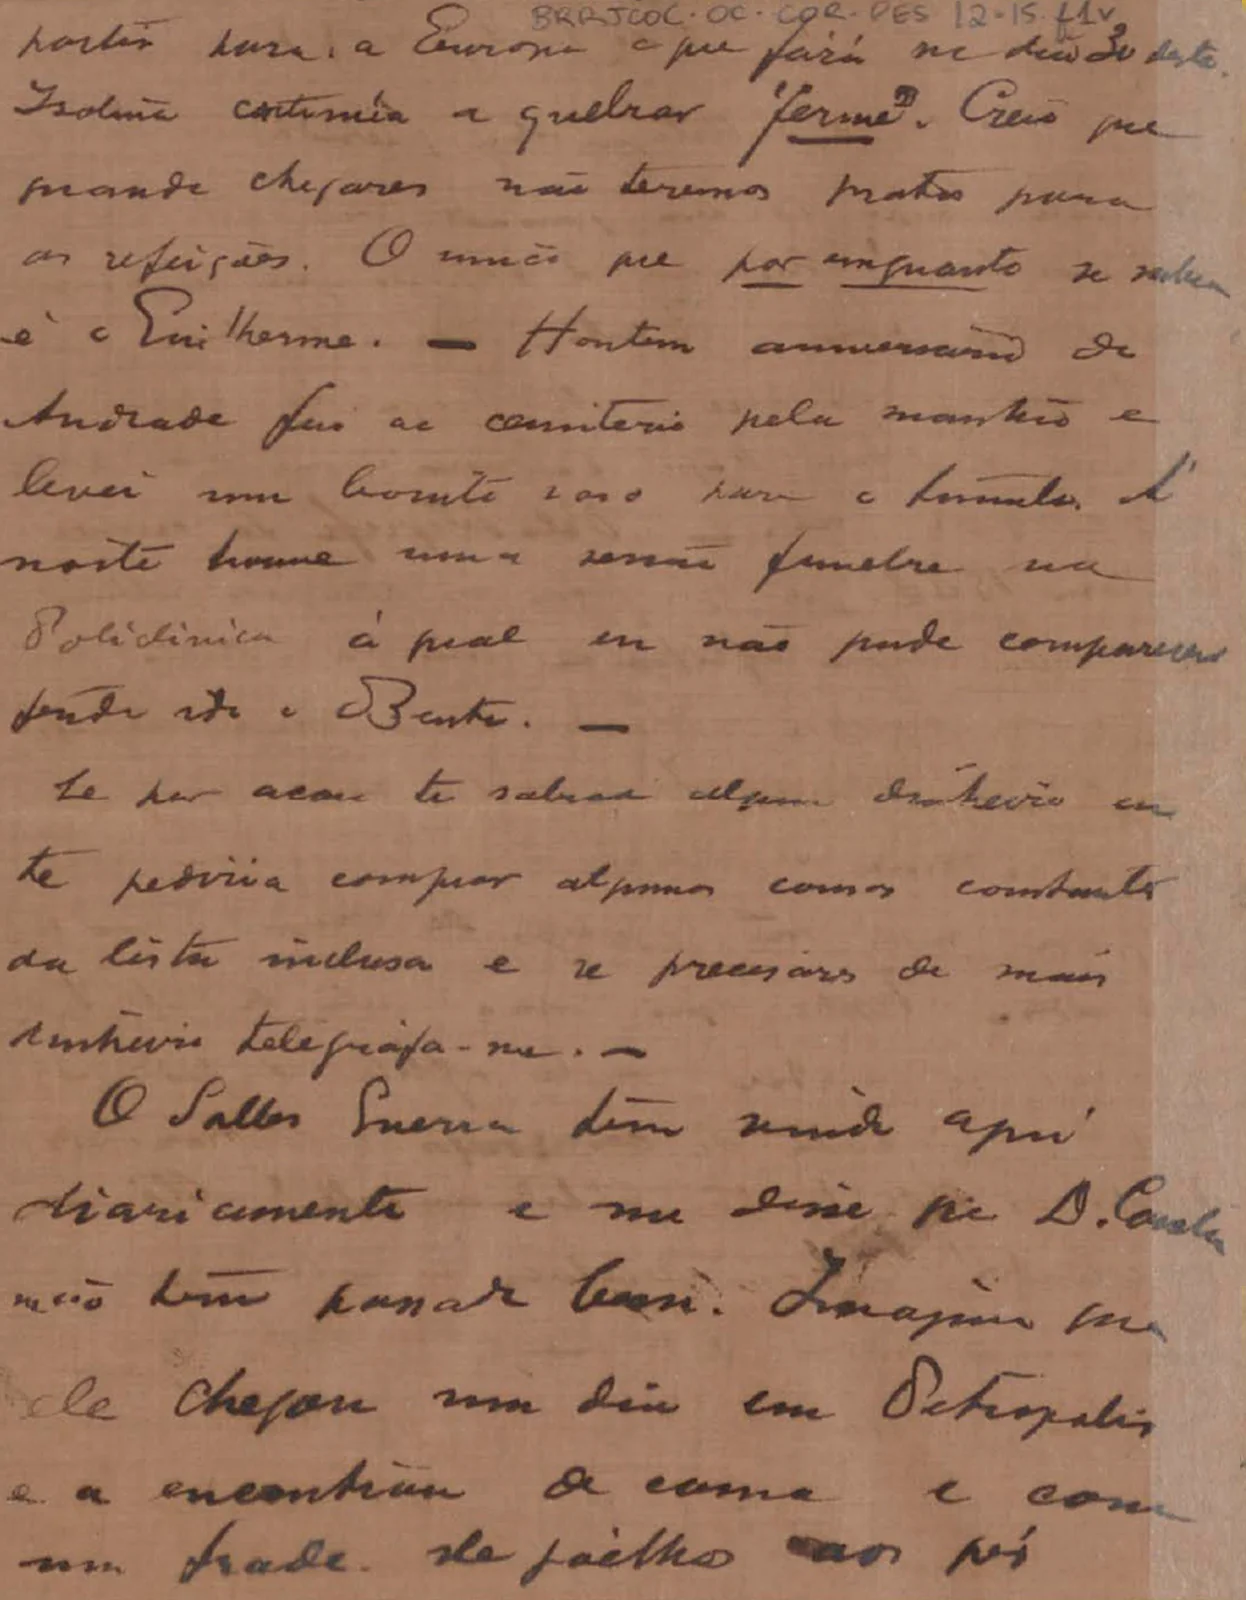 BRRJCOC·OC·COR·PES 12-15 f1v
partir para a Europa o que fará no dia 30 deste.
Isolina continúa a quebrar "ferme". Creio que
quando chegares não teremos pratos para
as refeições. O unico que por emquanto se
é o Guilherme. — Hontem anniversario do
Andrade fui ao cemiterio pela manhã e
levei um bonito vaso para o tumulo. Á
noite houve uma sessão funebre na
Policlinica á qual eu não pude comparecer
tendo ido o Bento. —
Se por acaso te sobrar algum dinheiro eu
te pediria comprar algumas cousas constantes
da lista inclusa e se precisares de mais
dinheiro telegrafa-me. —
O Salles Guerra tem vindo aqui
diariamente e me disse que D.
não tem passado bem. Imagina que
ele chegou um dia em Petropolis
e a encontrou de cama e com
um frade de joelhos aos pés